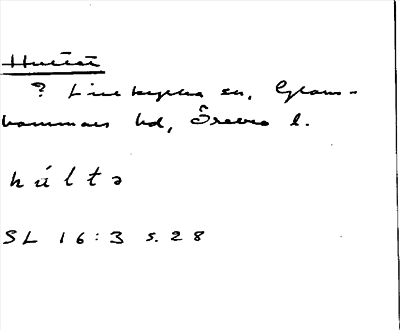 Hultet
? Lillkyrka sn, Glans-
hammars hd, Örebro l.
húltə
SL 16:3 s. 28